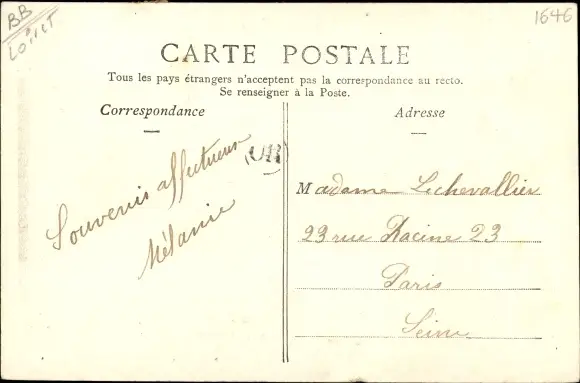 BB
Loiret
1646
CARTE POSTALE
Tous les pays étrangers n'acceptent pas la correspondance au recto.
Se renseigner à la Poste.
Correspondance
Adresse
Souvenir affectueux
Mélanie
OR
Madame Lechevallier
23 rue Racine 23
Paris
Seine